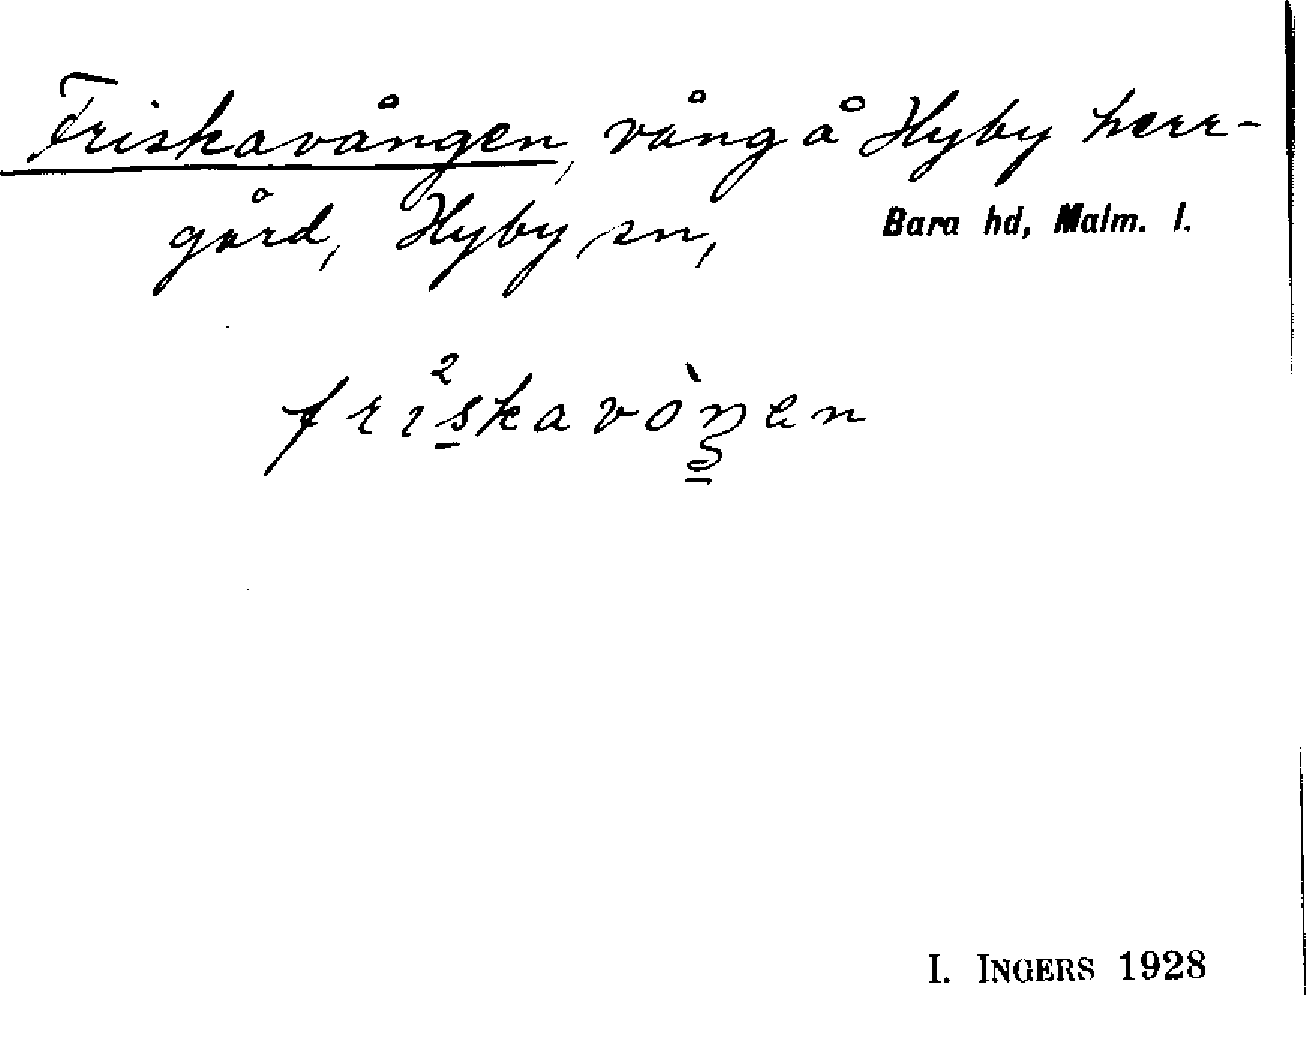 Friskavången, vång å Hyby herr-
gård, Hyby sn, Bara hd, Malm. l.
fri²skavòŋen
I. INGERS 1928